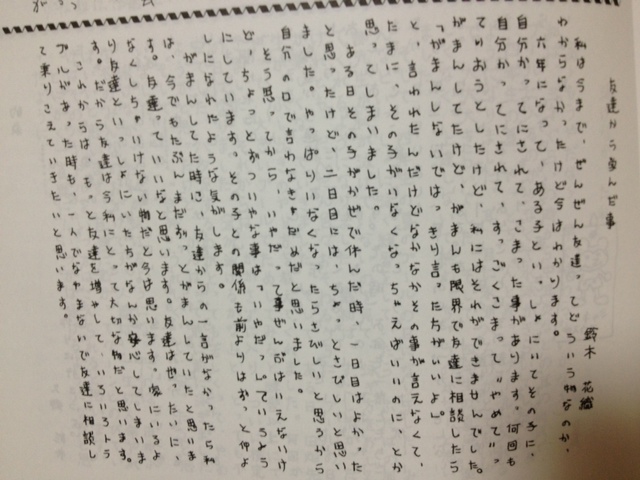 友達から学んだ事
鈴木 花織
私は今まで、ぜんぜん友達ってどういう物なのか、
わからなかったけど今はわかります。
六年になって、ある子といっしょにいてその子に、
自分かってにされて、こまった事があります。何回も
自分かってにされて、すっごくこまって、"やめて"っ
ていおうとしたけど、私にはそれができませんでした。
がまんしてたけど、がまんも限界で友達に相談したら
「がまんしないではっきり言ったほうがいいよ」
と、言われたんだけどなかなかその事が言えなくて、
たまに、その子がいなくなっちゃえばいいのに、とか
思ってしまいました。
ある日その子がかぜで休んだ時、一日目はよかった
と思ったけど、二日目には、ちょっとさびしいと思い
ました。やっぱりいなくなったらさびしいと思うから
自分の口で言わなきゃだめだと思いました。
そう思ってから、いやだって事ぜんぶはいえないけ
ど、ちょっとずついやな事は「いやだ」っていうよう
にしています。その子との関係も前よりはずっと仲よ
しになれたような気がします。
がまんしてた時に、友達からの一言がなかったら私
は、今でもたぶんまだずっとがまんしていたと思いま
す。友達って、いいなと思います。友達はぜったいに、
なくしちゃいけない物だと今は思います。家にいるよ
り友達といっしょにいたほうがなんか安心してしまいま
す。だから友達は今私にとって大切な物だと思います。
これからは、もっと友達を増やして、いろいろトラ
ブルがあった時も、一人でなやまないで友達に相談し
て乗りこえていきたいと思います。